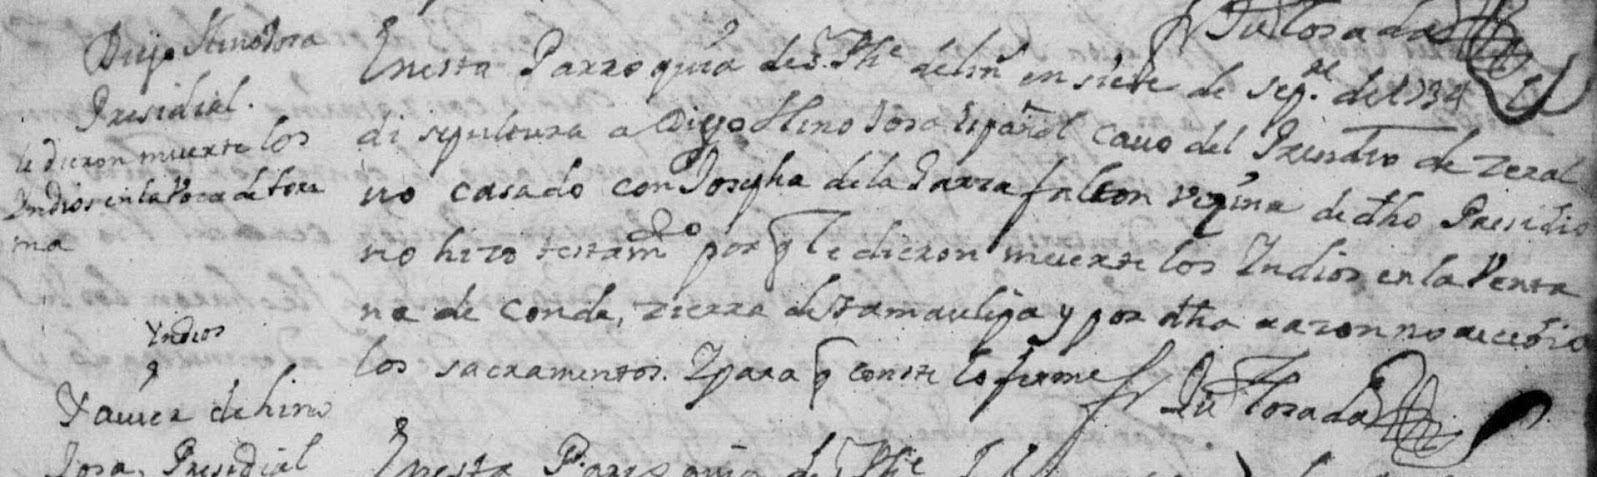 Fr Ju Losada
Diego Hinojosa
Presidial.
le dieron muerte los
Yndios en la Voca de
ma
Enesta Parroquia de S. Phe delin en siete de Sepe. de 1734
di sepultura a Diego Hinojosa Español cauo del Presidio de Zeral
uo casado con Josepha de la Garza falcon vezina de dho Presidio
no hizo testamto por q le dieron muerte los Yndios en la Venta
na de Conde, zierra de tamaulipa y por dha razon no recebio
los sacramentos. Y para q conste lo firme
Fr Ju Losada
Yndios
Xauier de hino
Josa, Presidial
Enesta Parroquia de S. Phe